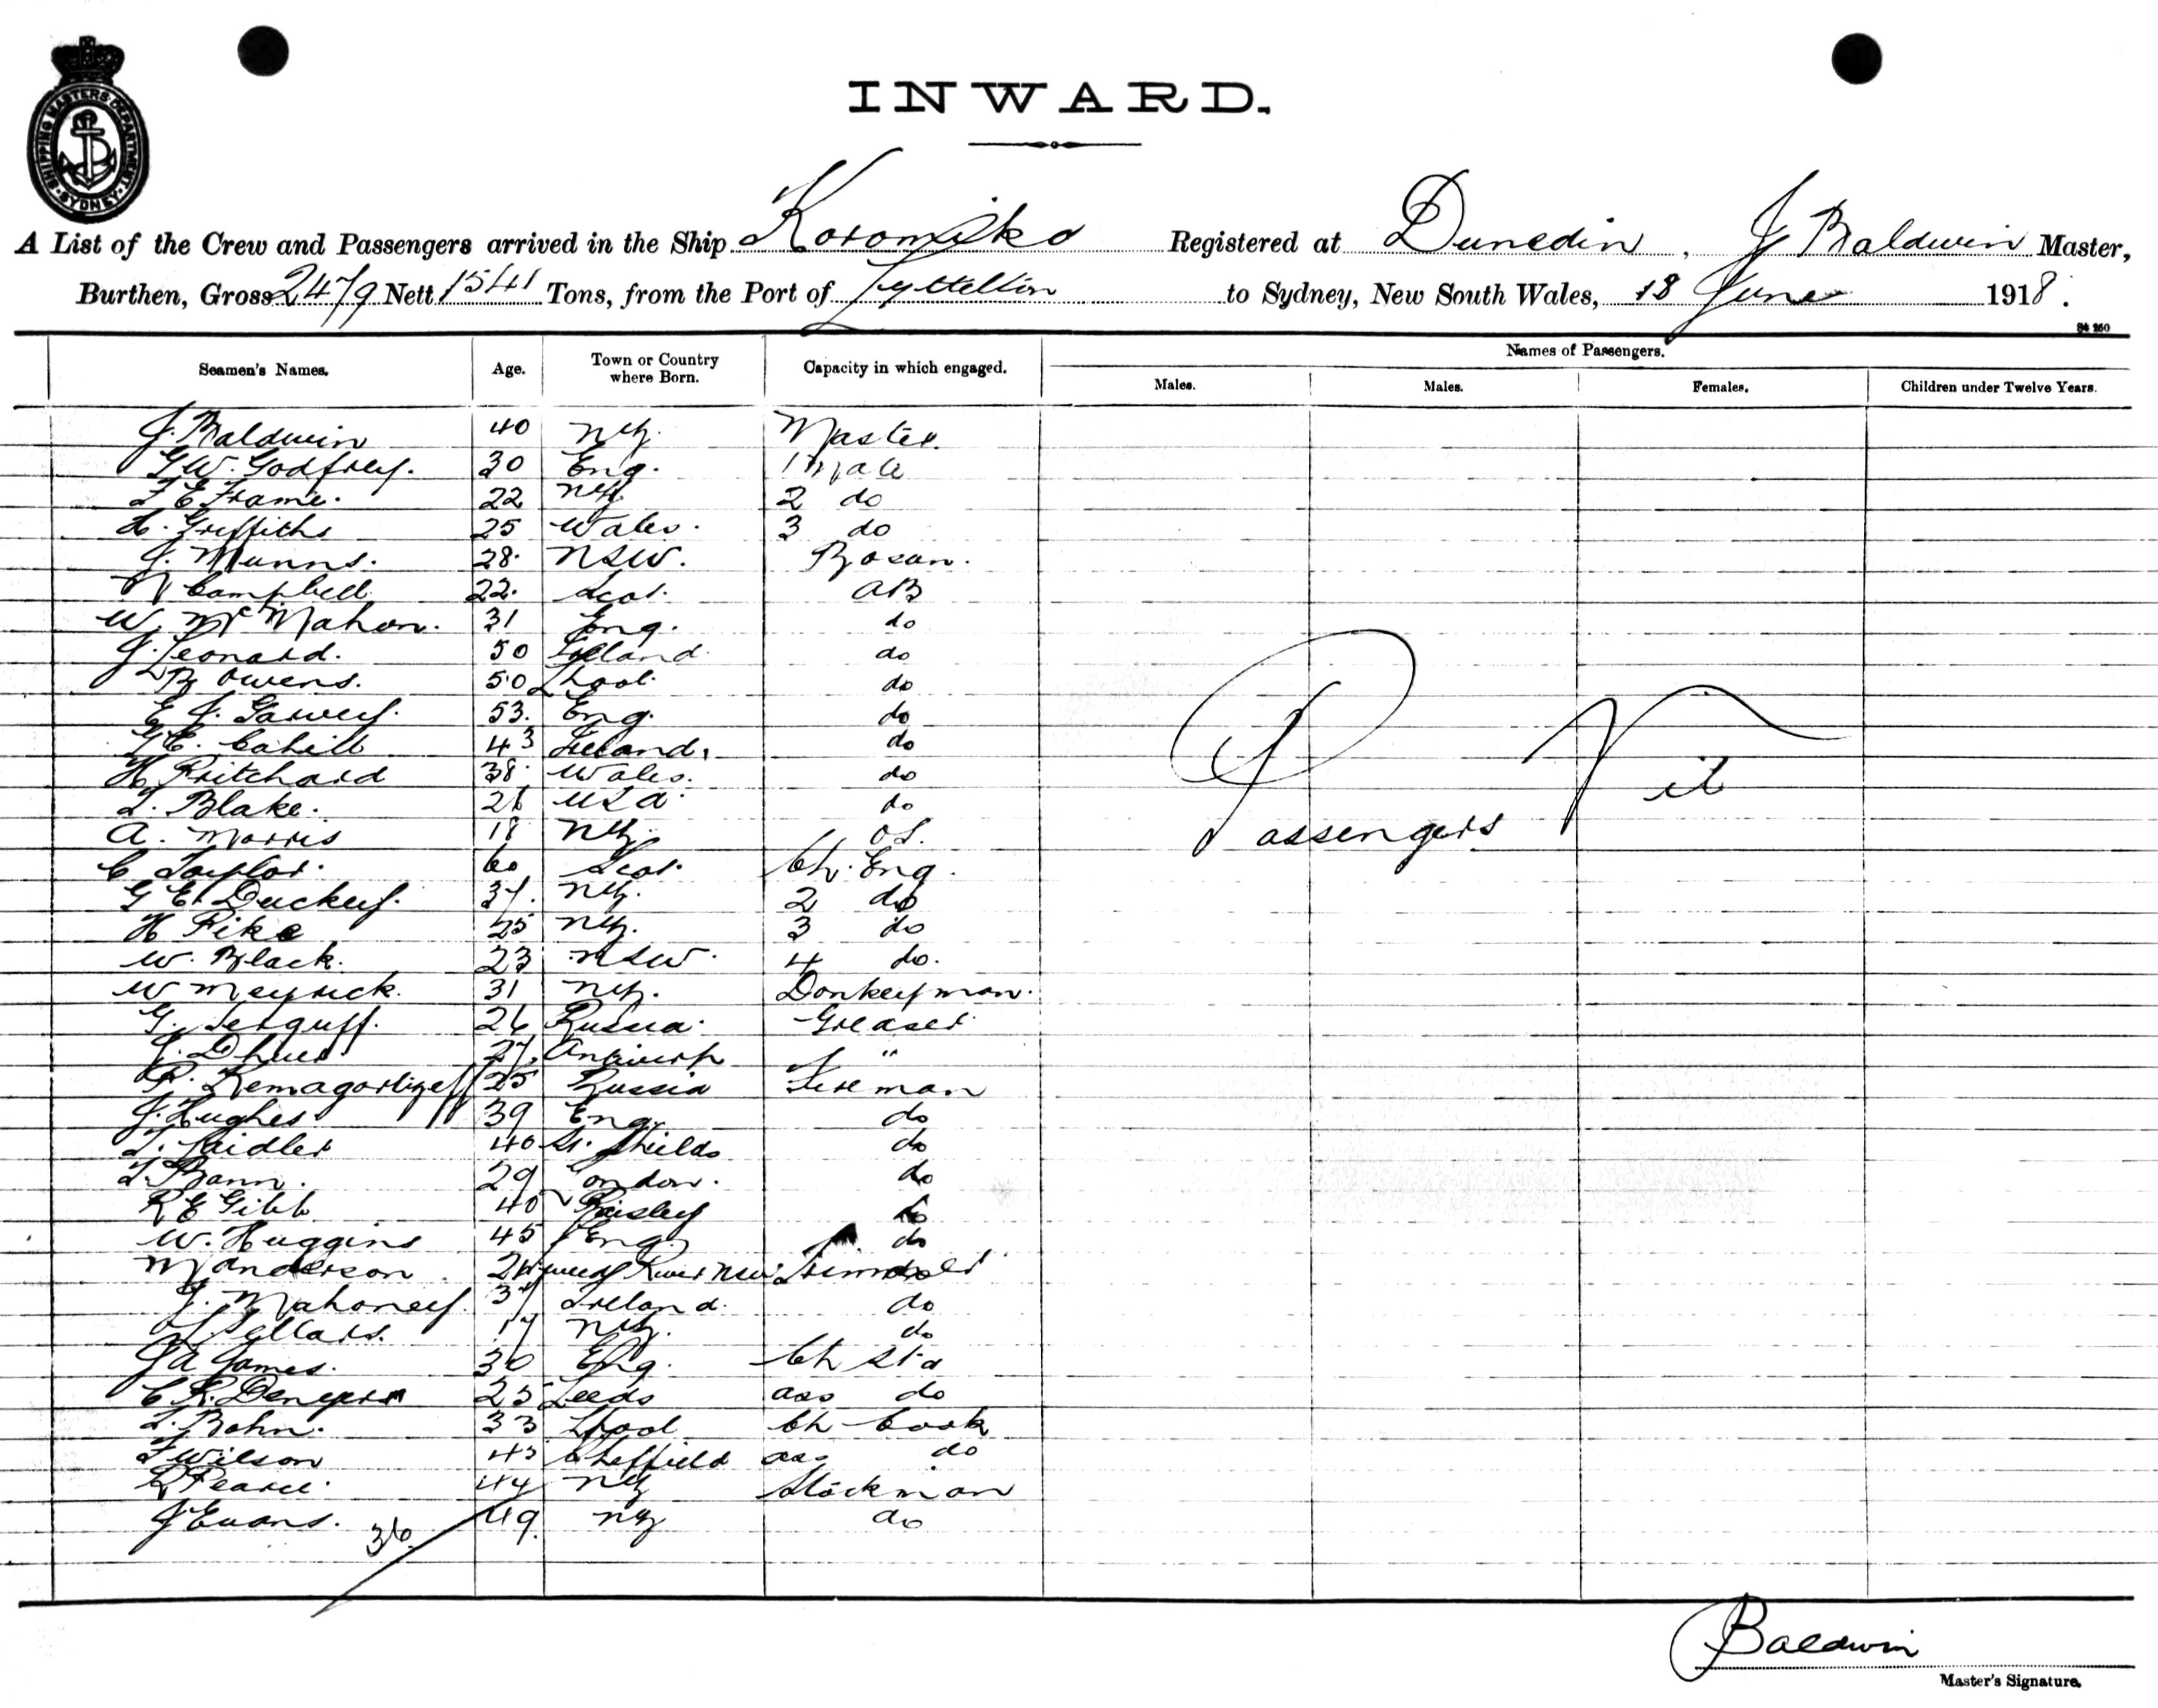 SHIPPING MASTERS DEPARTMENT SYDNEY
INWARD.
A List of the Crew and Passengers arrived in the Ship Koromiko Registered at Dunedin, J Baldwin Master,
Burthen, Gross 2479 Nett 1541 Tons, from the Port of Lyttelton to Sydney, New South Wales, 18 June 1918.
Names of Passengers.
Seamen's Names. Age. Town or Country where Born. Capacity in which engaged. Males. Males. Females. Children under Twelve Years.
J. Baldwin 40 NZ. Master.
G W. Godfrey. 30 Eng. 1 Mate
F E Frame. 22 NZ 2 do
H. Griffiths 25 Wales. 3 do
J. Munns. 28. NSW. Bosun.
N Campbell 22. Scot. AB
W. McMahon. 31 Eng. do
J. Leonard. 50 Ireland. do
R Owens. 50 Lpool. do
E J. Garvey. 53. Eng. do
G E. Cahill 43 Ireland. do
H Pritchard 38. Wales. do
L. Blake. 26 USA. do
A. Morris 18 NZ. OS.
C Taylor. 60 Scot. Ch. Eng.
G E. Duckey. 37. NZ. 2 do
H Pike 25 NZ. 3 do
W. Black. 23 NSW. 4 do.
W Meyrick. 31 NZ. Donkeyman.
G. Serguff. 26 Russia. Greaser
27. Antwerp "
25 Russia Fireman
J. Hughes 39 Eng. do
T. Laidler 40 St. Shields do
29 London. do
R E Gibb 40 Paisley do
W. Huggins 45 Eng. do
M Anderson 24 Tweed River NSW Trimmer
J. Mahoney. 37 Ireland. do
Sellars. 17 NZ. do
J A James. 30 Eng. Ch Std
C R. 25 Leeds ass do
33 Lpool Ch Cook
F Wilson 43 Sheffield ass do
Pearce 44 NZ Stockman
J Evans. 49. NZ do
36
Passengers Nil
Baldwin
Master's Signature.